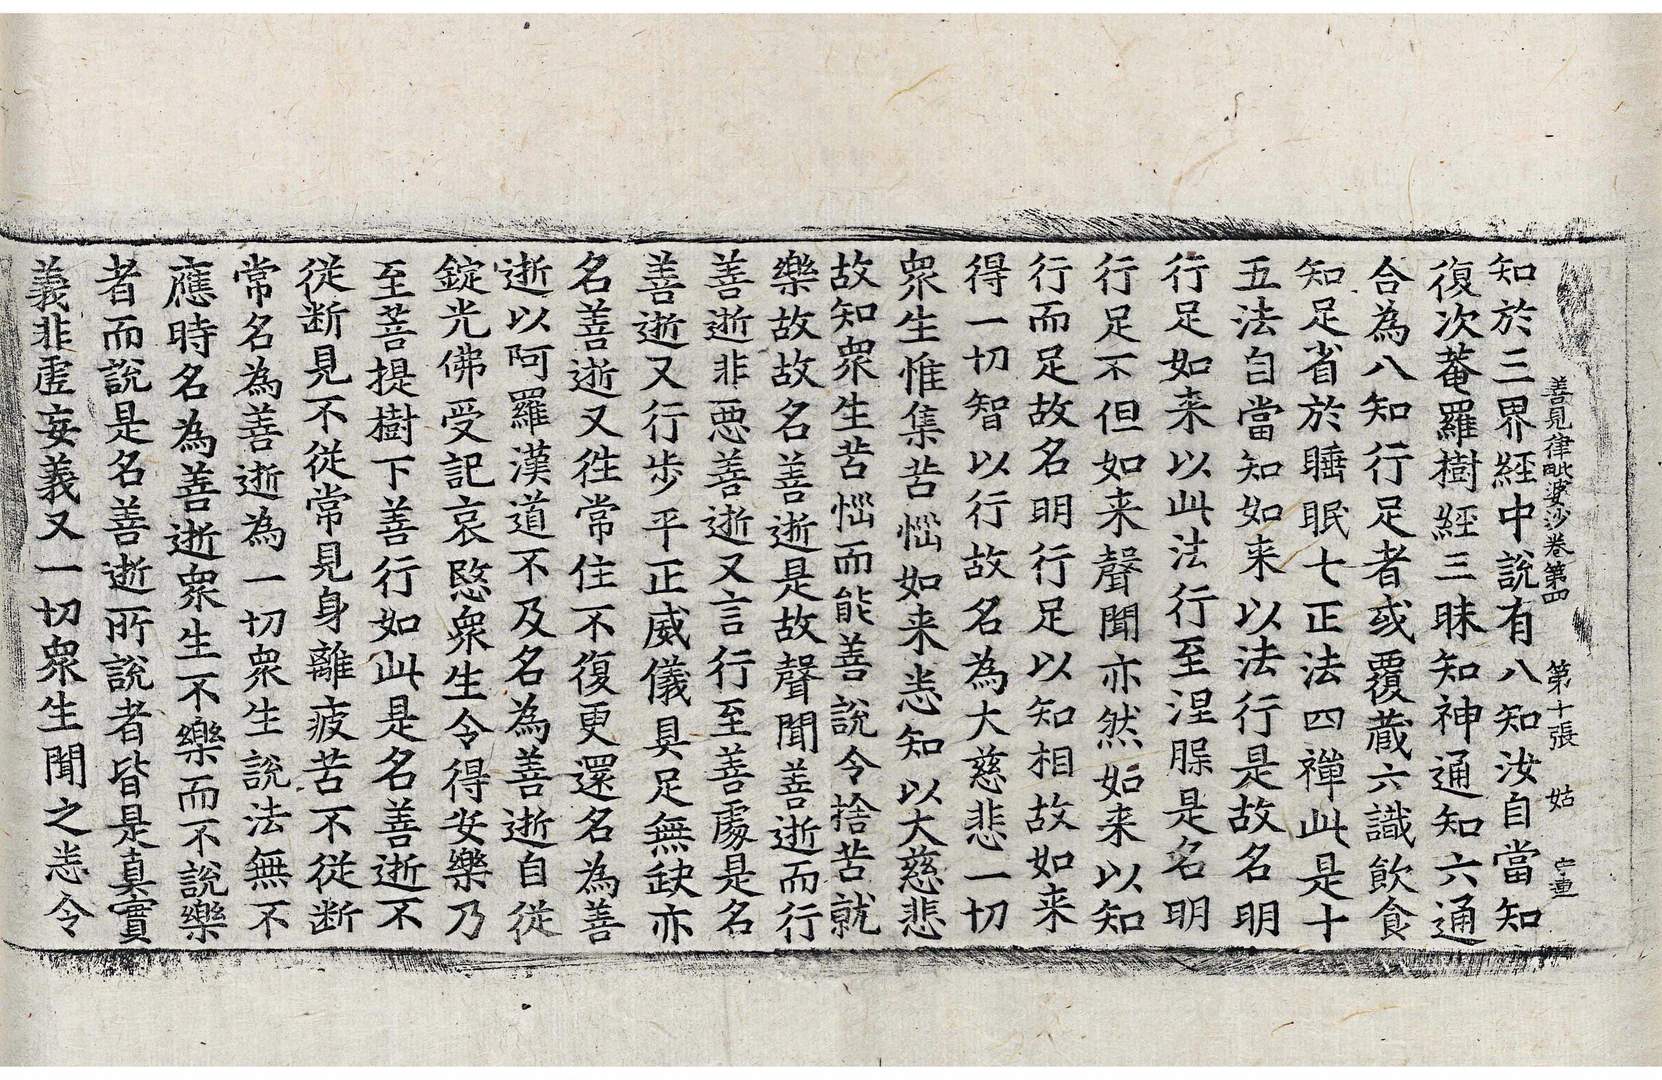 善見律毗婆沙卷第四 第十張 姑 宇重
知於三界經中說有八知汝自當知
復次菴羅樹經三昧知神通知六通
合為八知行足者或覆蔵六識飲食
知足省於睡眠七正法四禪此是十
五法自當知如来以法行是故名明
行足如来以此法行至涅槃是名明
行足不但如来聲聞亦然如来以知
行而足故名明行足以知相故如来
得一切智以行故名為大慈悲一切
衆生惟集苦惱如来恙知以大慈悲
故知衆生苦惱而能善說令捨苦就
樂故故名善逝是故聲聞善逝而行
善逝非惡善逝又言行至善處是名
善逝又行步平正威儀具足無缺亦
名善逝又徃常住不復更還名為善
逝以阿羅漢道不及名為善逝自從
錠光佛受記哀愍衆生令得安樂乃
至菩提樹下善行如此是名善逝不
從断見不從常見身離疲苦不從断
常名為善逝為一切衆生說法無不
應時名為善逝衆生不樂而不說樂
者而說是名善逝所說者皆是真實
義非虛妄義又一切衆生聞之恙令